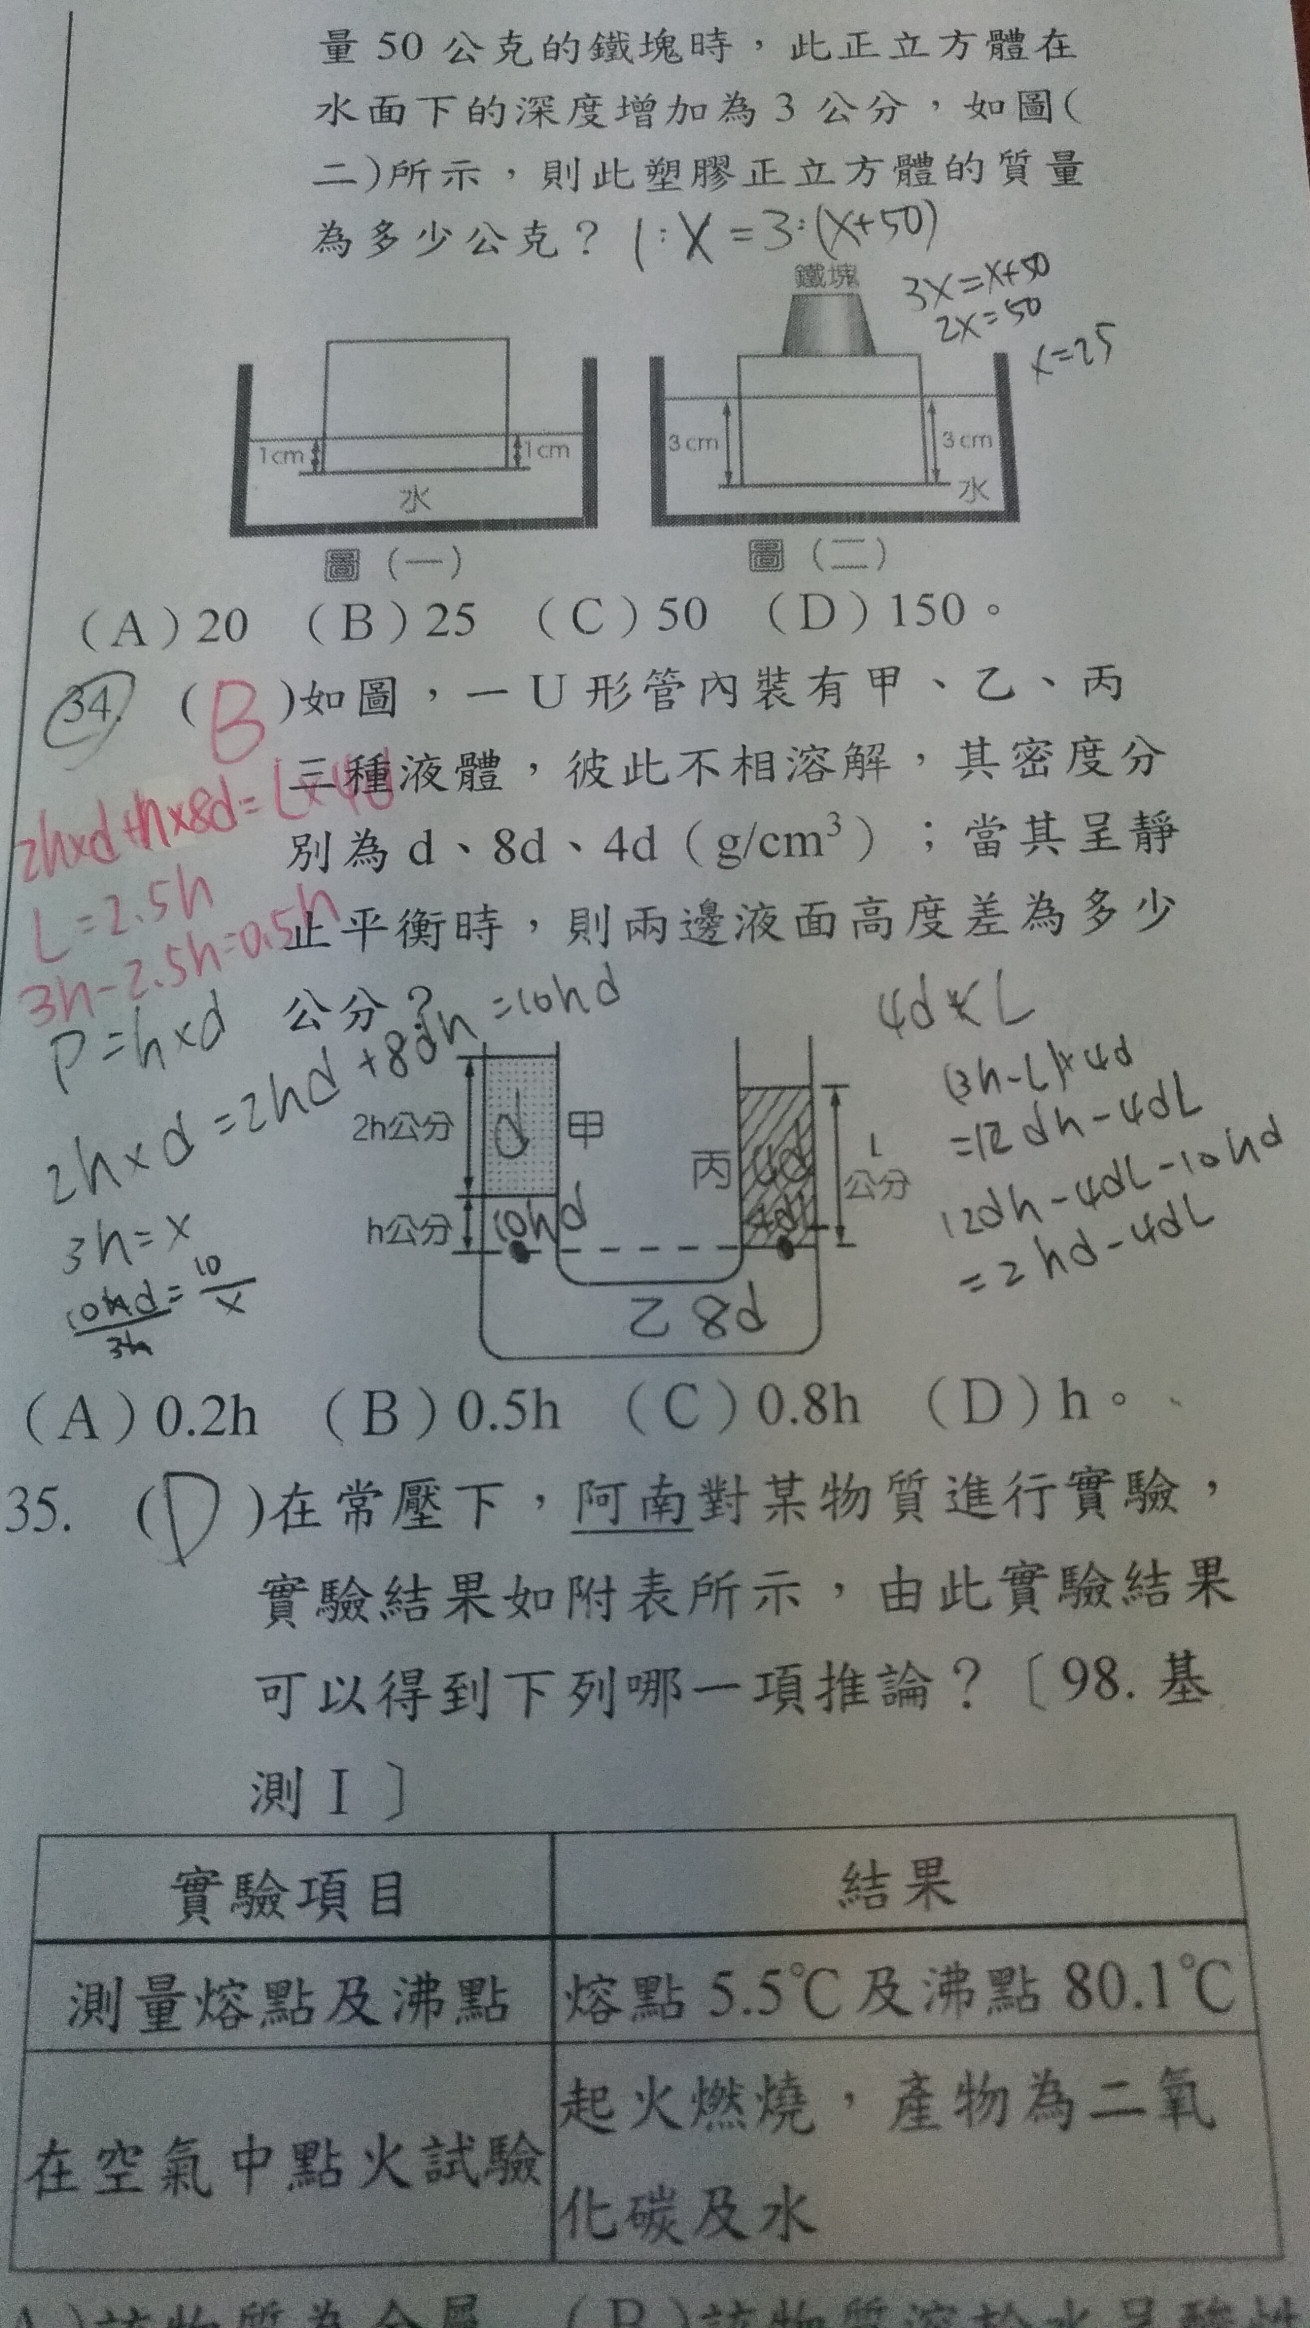 量 50 公克的鐵塊時，此正立方體在
水面下的深度增加為 3 公分，如圖(
二)所示，則此塑膠正立方體的質量
為多少公克？ 1:X=3:(X+50)
3X=X+50
2X=50
X=25
鐵塊
1cm
1cm
水
圖（一）
3cm
3cm
水
圖（二）
（A）20 （B）25 （C）50 （D）150。
34. (B)如圖，一 U 形管內裝有甲、乙、丙
三種液體，彼此不相溶解，其密度分
別為 d、8d、4d（g/cm³）；當其呈靜
止平衡時，則兩邊液面高度差為多少
公分？
2h×d+h×8d=L×4d
L=2.5h
3h-2.5h=0.5h
P=h×d
2h×d=2hd+8dh=10hd
3h=x
10hd/3h=10/x
4d×L
(3h-L)×4d
=12dh-4dL
12dh-4dL-10hd
=2hd-4dL
2h公分
d
甲
丙
4d
L
公分
h公分
10hd
4dL
乙 8d
（A）0.2h （B）0.5h （C）0.8h （D）h。
35. (D)在常壓下，阿南對某物質進行實驗，
實驗結果如附表所示，由此實驗結果
可以得到下列哪一項推論？〔98. 基
測Ⅰ〕
實驗項目 結果
測量熔點及沸點 熔點 5.5℃及沸點 80.1℃
在空氣中點火試驗 起火燃燒，產物為二氧
化碳及水
A)該物質為金屬 (B)該物質溶於水呈酸性